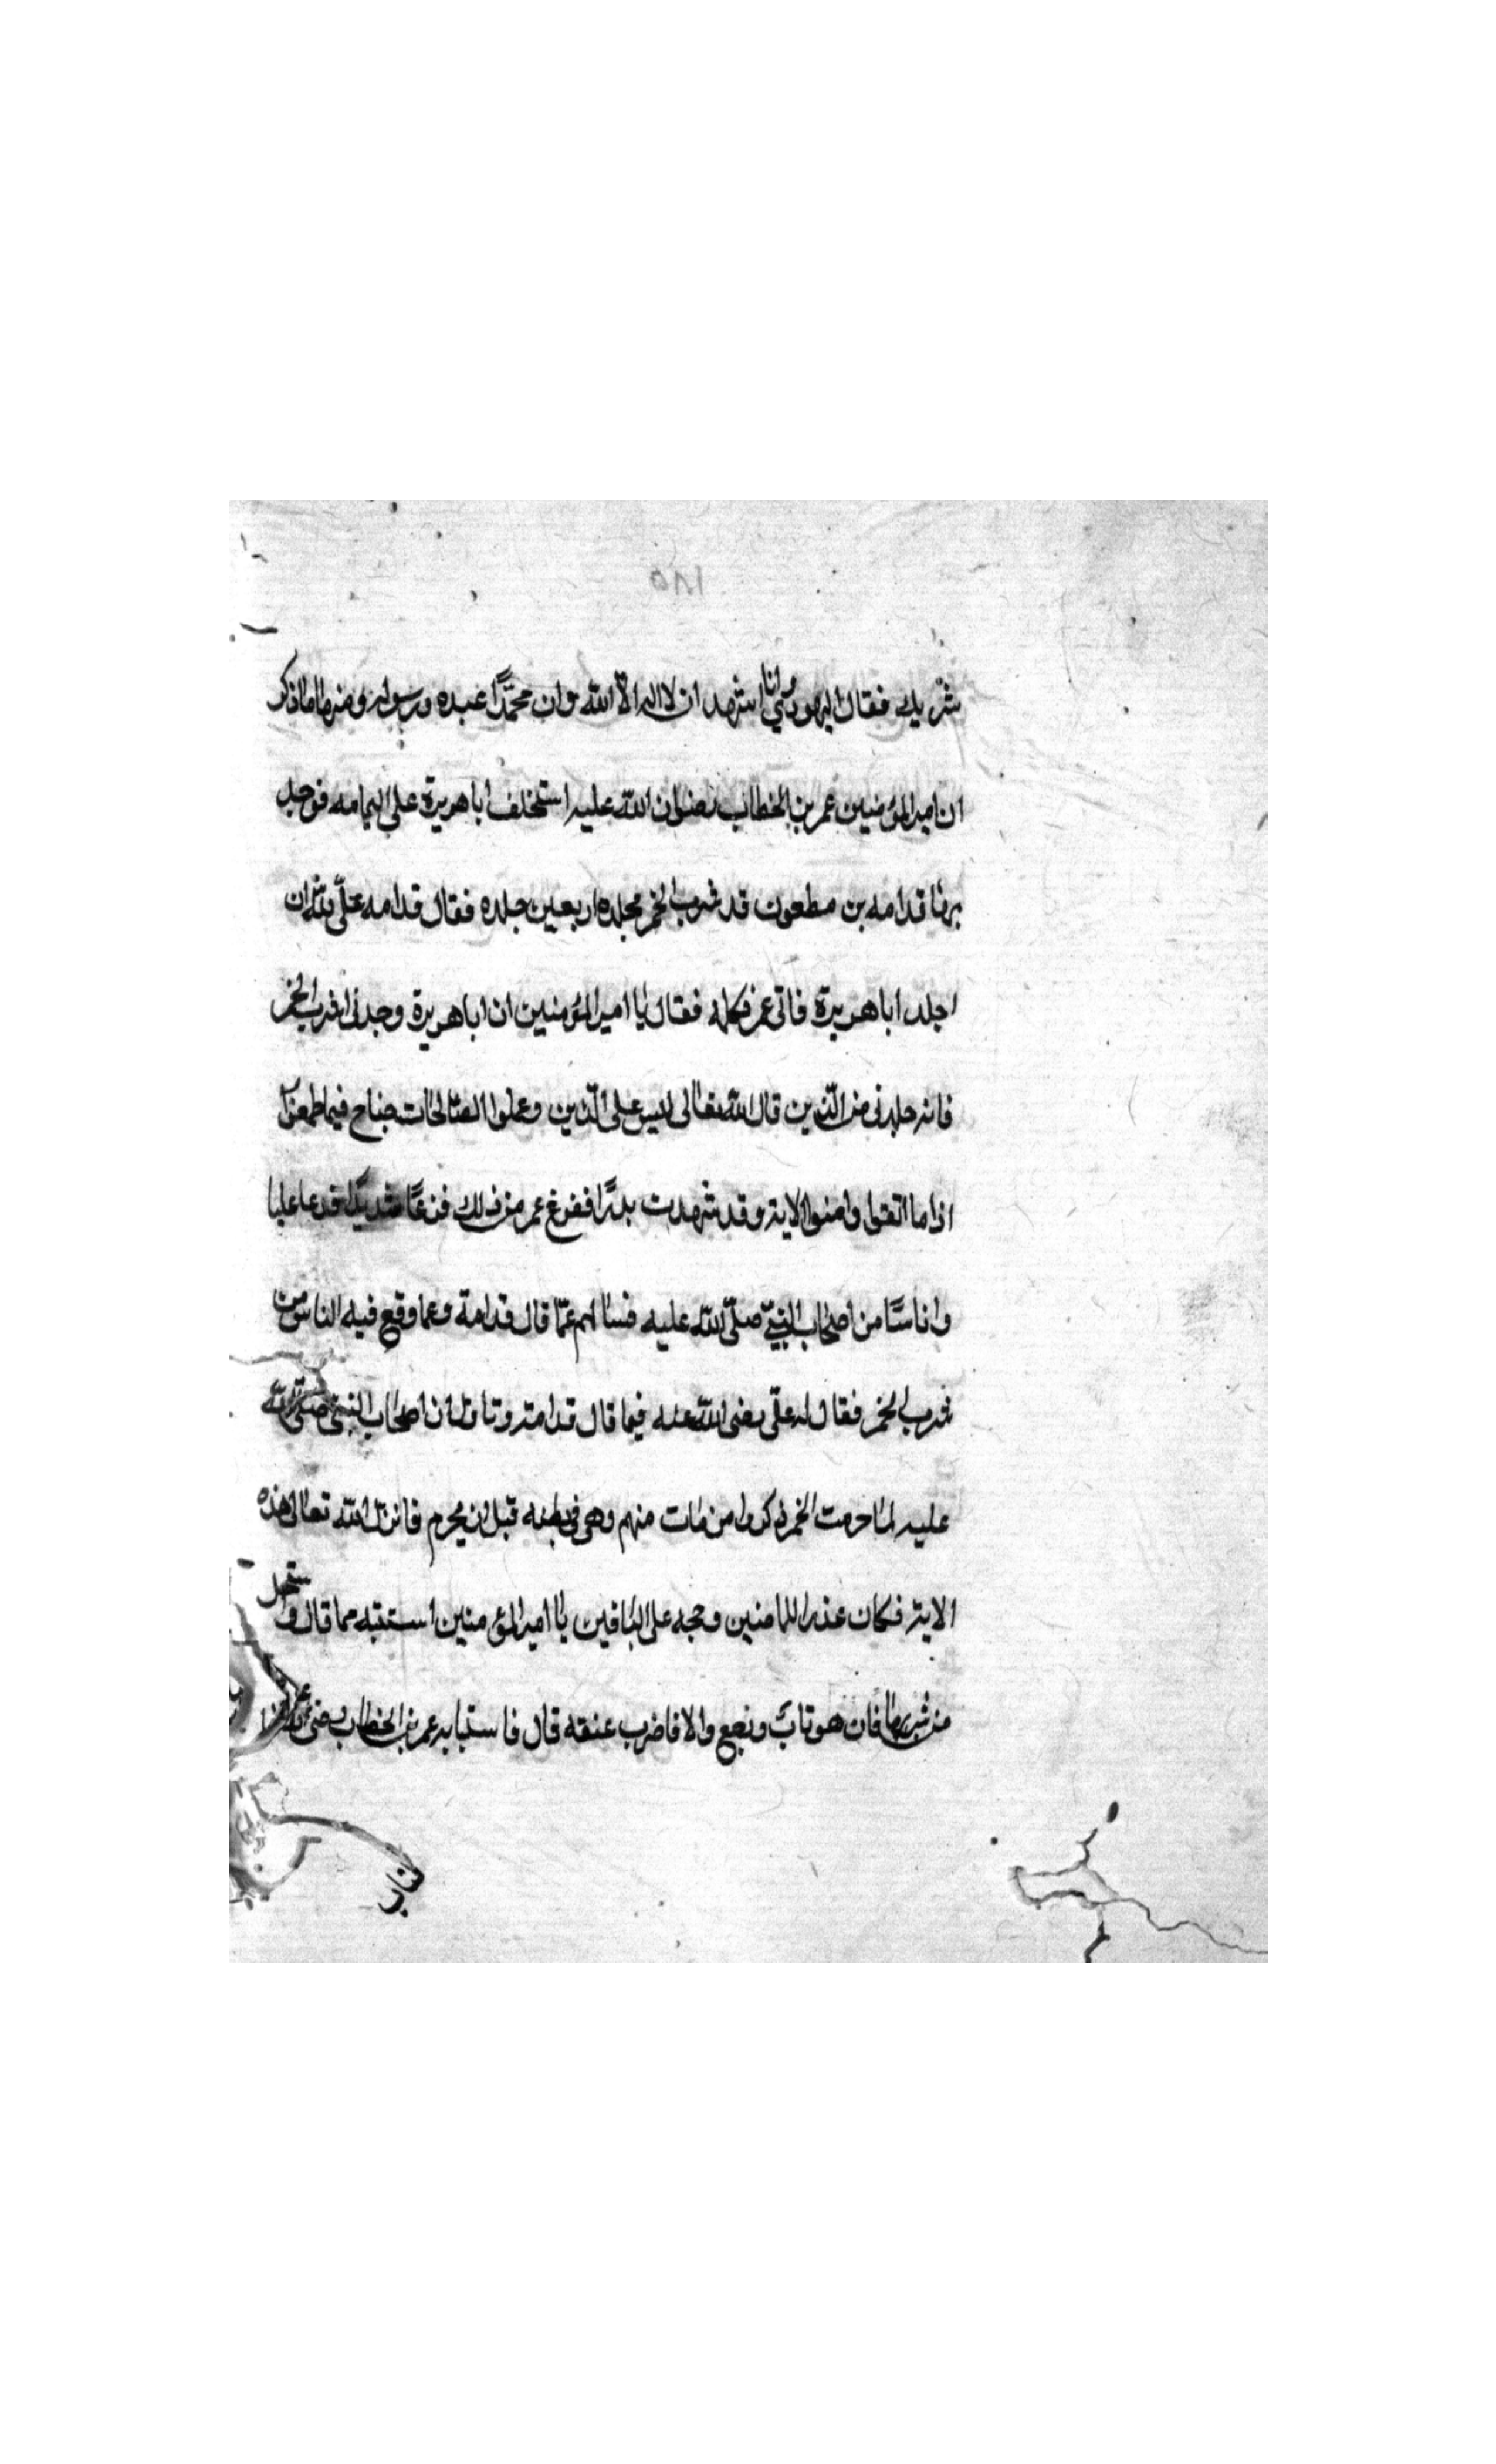 شريك فقال اليهودي وانا اشهد ان لا اله الا الله وان محمدًا عبده ورسوله ومنها ما ذكر
ان امير المؤمنين عمر بن الخطاب رضوان الله عليه استخلف ابا هريرة على اليمامه فوجد
بها قدامه بن مطعون قد شرب الخمر فجلده اربعين جلده فقال قدامه علىّ لله ان
اجلد ابا هريرة فاتى عمر فكلمه فقال يا امير المؤمنين ان ابا هريرة وجدنى اشرب الخمر
فانه جلدنى من الذين قال الله تعالى ليس على الذين وعملوا الصالحات جناح فيما طعموا
اذا ما اتقوا وامنوا الاية وقد شهدت بدرًا ففزع عمر من ذلك فزعًا شديدًا فدعا عليا
واناسًا من اصحاب النبيّ صلّى الله عليه فسالهم عمّا قال قدامة وعما وقع فيه الناس من
شرب الخمر فقال له علىّ رضى الله عنه فيما قال قدامة وتاول ان اصحاب النبيّ صلّى الله
عليه لما حرمت الخمر ذكروا من مات منهم وهى فى بطنه قبل ان يحرم فانزل الله تعالى هذه
الاية فكان عذرا للماضين وحجه على الباقين يا امير المؤمنين استتبه مما قال و
من شربها فان هو تاب ورجع والا فاضرب عنقه قال فاستتابه عمر بن الخطاب رضى الله
فتاب